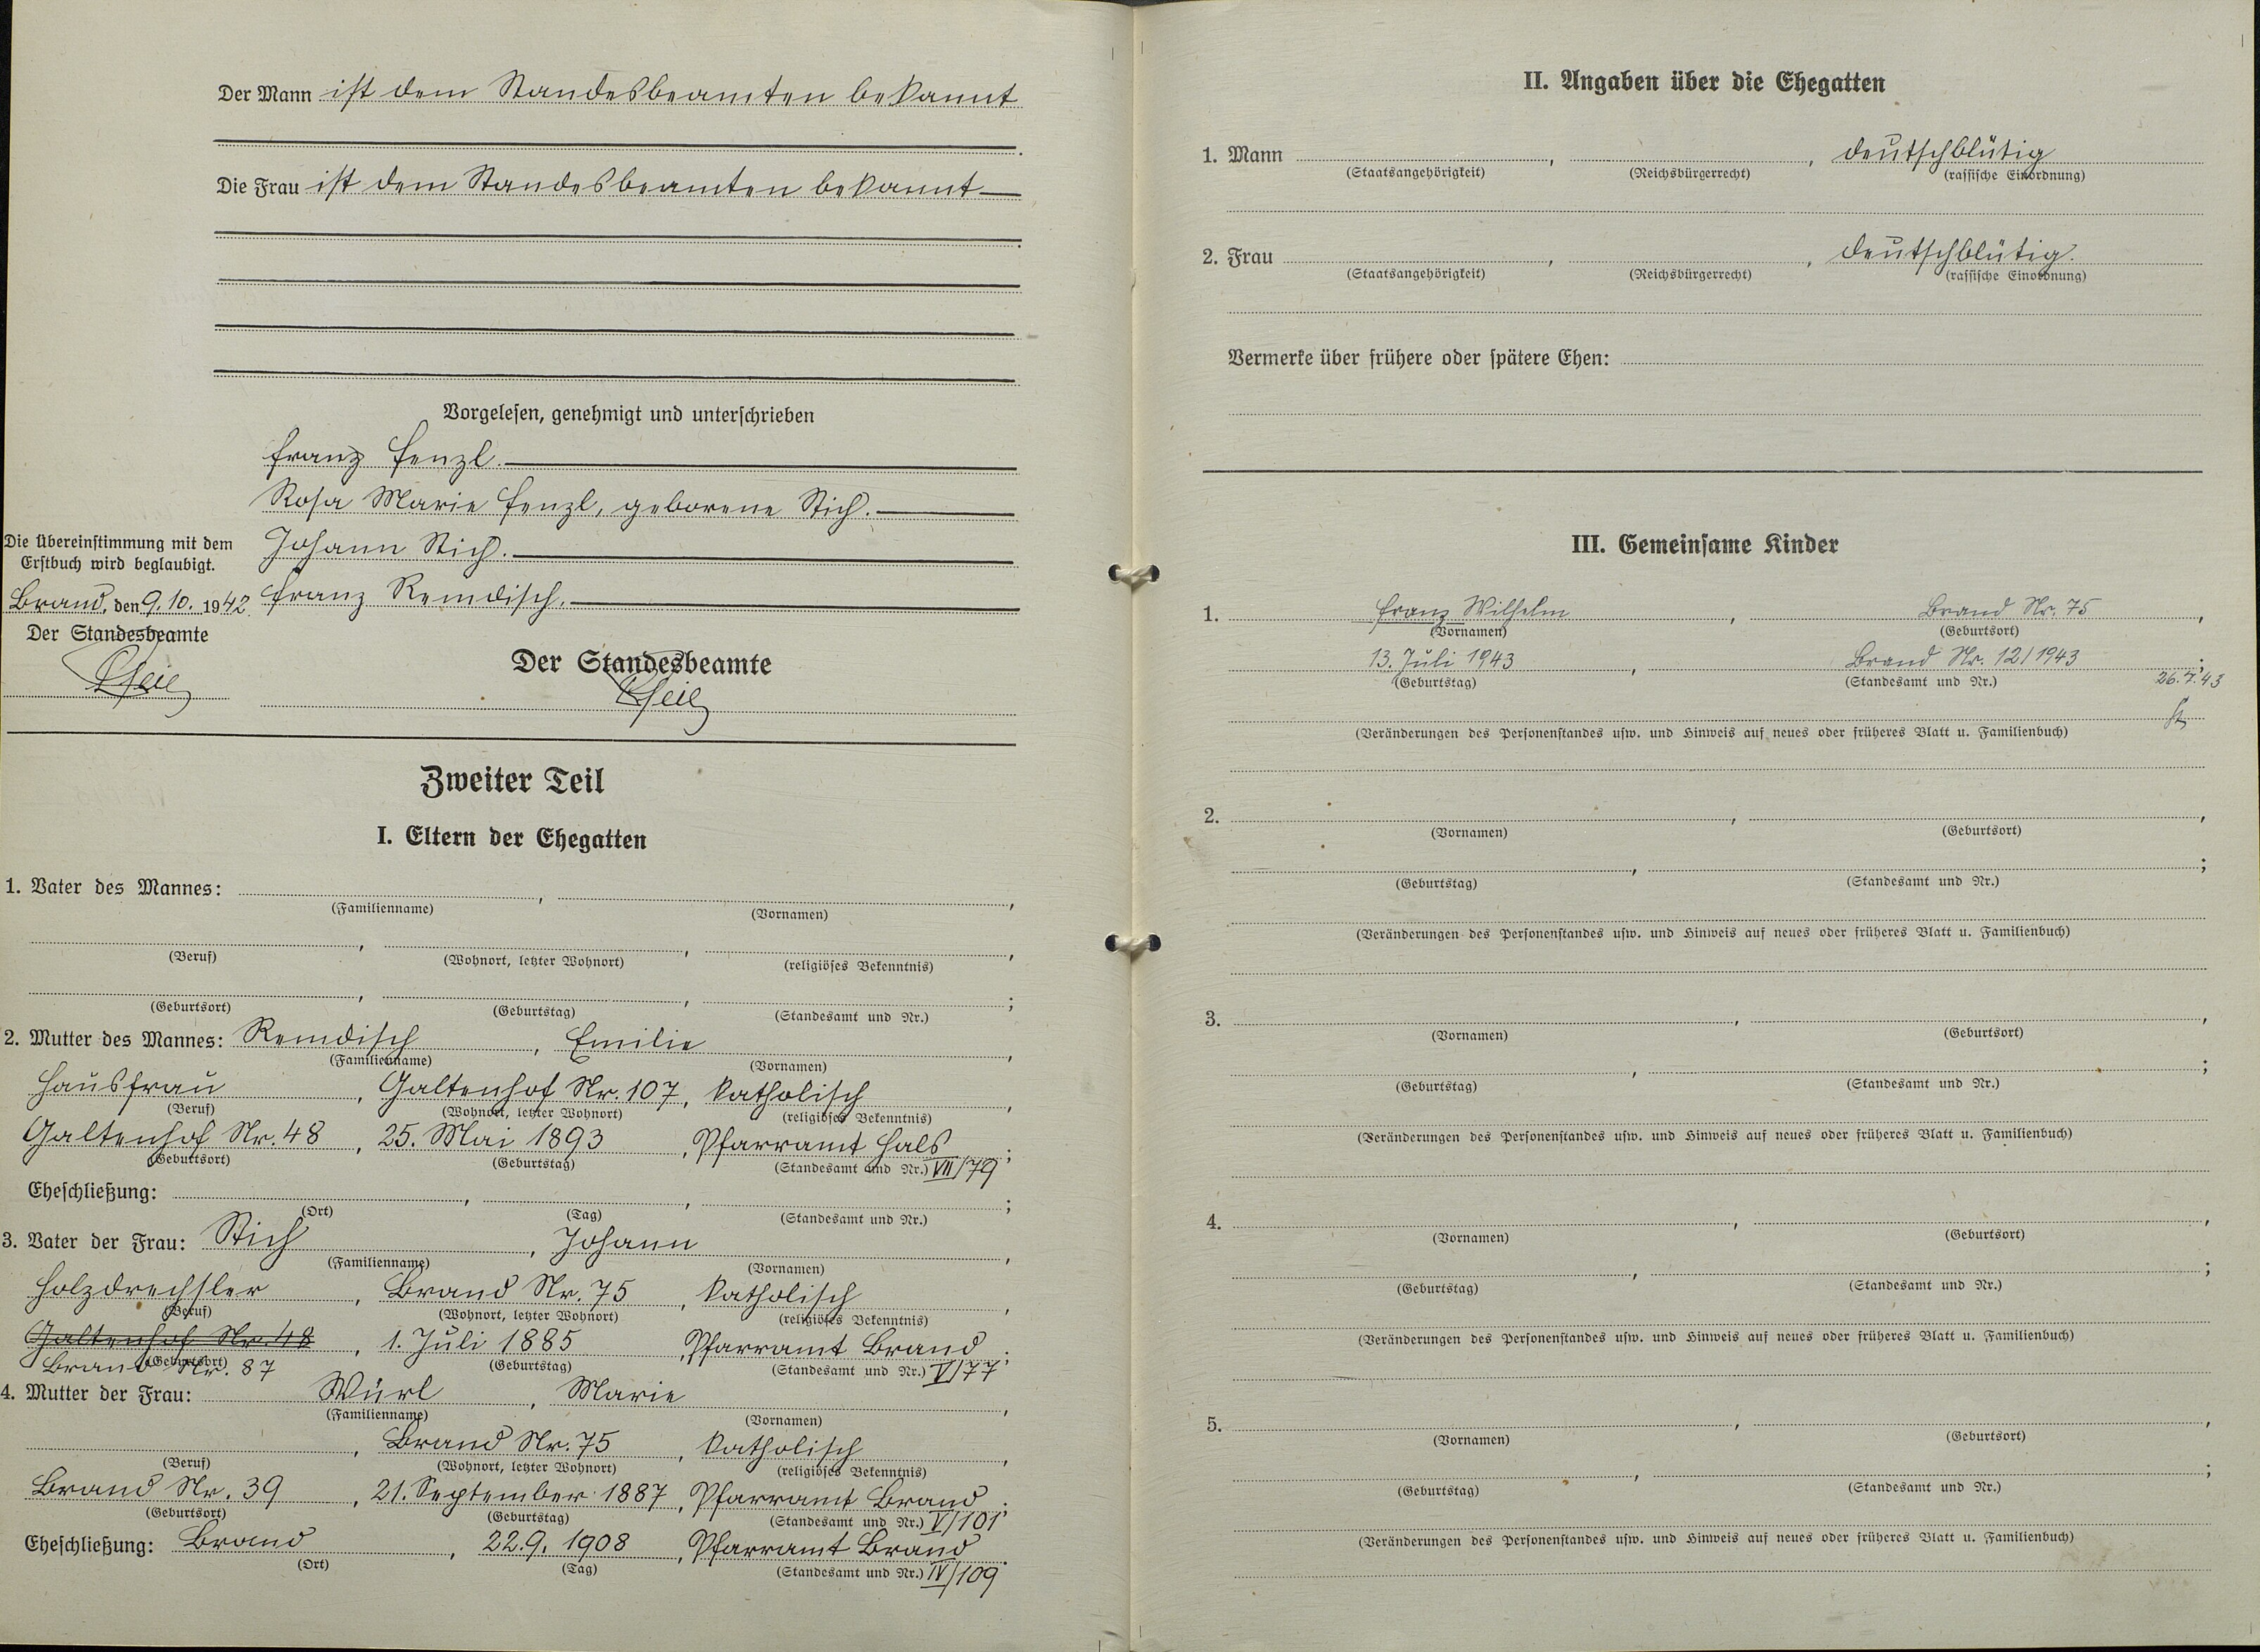 Der Mann ist dem Standesbeamten bekannt
Die Frau ist dem Standesbeamten bekannt
Vorgelesen, genehmigt und unterschrieben
Franz Fenzl.
Rosa Marie Fenzl, geborene Stich.
Johann Stich.
Franz Remdisch.
Die Übereinstimmung mit dem
Erstbuch wird beglaubigt.
Brand, den 9. 10. 1942
Der Standesbeamte
Der Standesbeamte
Zweiter Teil
I. Eltern der Ehegatten
1. Vater des Mannes: , ,
(Familienname) (Vornamen)
, , ,
(Beruf) (Wohnort, letzter Wohnort) (religiöses Bekenntnis)
, , ;
(Geburtsort) (Geburtstag) (Standesamt und Nr.)
2. Mutter des Mannes: Remdisch , Emilie ,
(Familienname) (Vornamen)
Hausfrau , Galtenhof Nr. 107, katholisch ,
(Beruf) (Wohnort, letzter Wohnort) (religiöses Bekenntnis)
Galtenhof Nr. 48 , 25. Mai 1893 , Pfarramt Hals ;
(Geburtsort) (Geburtstag) (Standesamt und Nr.) VII/79
Eheschließung: , , ;
(Ort) (Tag) (Standesamt und Nr.)
3. Vater der Frau: Stich , Johann ,
(Familienname) (Vornamen)
Holzdrechsler , Brand Nr. 75 , katholisch ,
(Beruf) (Wohnort, letzter Wohnort) (religiöses Bekenntnis)
Galtenhof Nr. 48 , 1. Juli 1885 , Pfarramt Brand ;
(Geburtsort) (Geburtstag) (Standesamt und Nr.) V/77
Brand Nr. 87
4. Mutter der Frau: Würl , Marie ,
(Familienname) (Vornamen)
, Brand Nr. 75 , katholisch ,
(Beruf) (Wohnort, letzter Wohnort) (religiöses Bekenntnis)
Brand Nr. 39 , 21. September 1887 , Pfarramt Brand ;
(Geburtsort) (Geburtstag) (Standesamt und Nr.) V/101
Eheschließung: Brand , 22. 9. 1908 , Pfarramt Brand .
(Ort) (Tag) (Standesamt und Nr.) IV/109
II. Angaben über die Ehegatten
1. Mann , , deutschblütig
(Staatsangehörigkeit) (Reichsbürgerrecht) (rassische Einordnung)
2. Frau , , deutschblütig.
(Staatsangehörigkeit) (Reichsbürgerrecht) (rassische Einordnung)
Vermerke über frühere oder spätere Ehen:
III. Gemeinsame Kinder
1. Franz Wilhelm , Brand Nr. 75 ,
(Vornamen) (Geburtsort)
13. Juli 1943 , Brand Nr. 12/1943 ;
(Geburtstag) (Standesamt und Nr.) 26.7.43
(Veränderungen des Personenstandes usw. und Hinweis auf neues oder früheres Blatt u. Familienbuch)
2. , ,
(Vornamen) (Geburtsort)
, ;
(Geburtstag) (Standesamt und Nr.)
(Veränderungen des Personenstandes usw. und Hinweis auf neues oder früheres Blatt u. Familienbuch)
3. , ,
(Vornamen) (Geburtsort)
, ;
(Geburtstag) (Standesamt und Nr.)
(Veränderungen des Personenstandes usw. und Hinweis auf neues oder früheres Blatt u. Familienbuch)
4. , ,
(Vornamen) (Geburtsort)
, ;
(Geburtstag) (Standesamt und Nr.)
(Veränderungen des Personenstandes usw. und Hinweis auf neues oder früheres Blatt u. Familienbuch)
5. , ,
(Vornamen) (Geburtsort)
, ;
(Geburtstag) (Standesamt und Nr.)
(Veränderungen des Personenstandes usw. und Hinweis auf neues oder früheres Blatt u. Familienbuch)